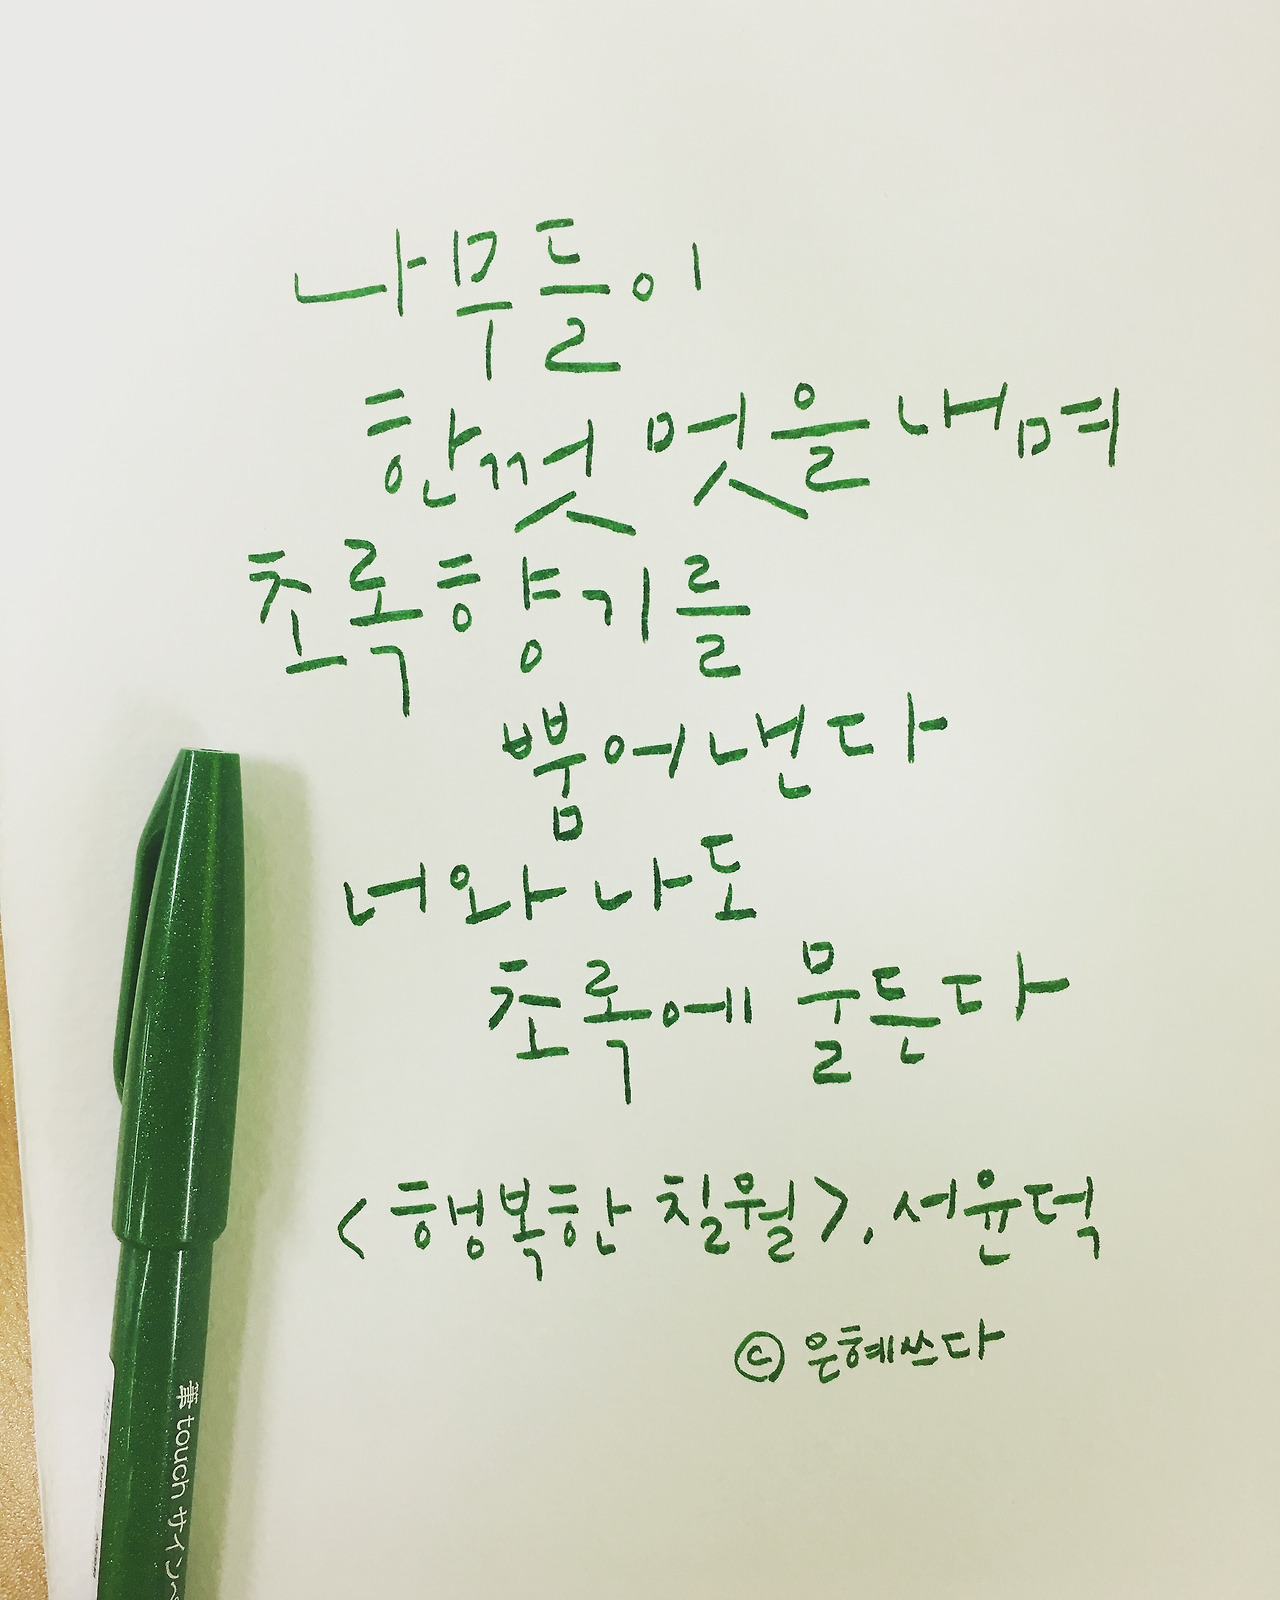 나무들이
한껏 멋을 내며
초록향기를
뿜어낸다
너와 나도
초록에 물든다
<행복한 칠월>, 서윤덕
© 은혜쓰다
筆touch サイン